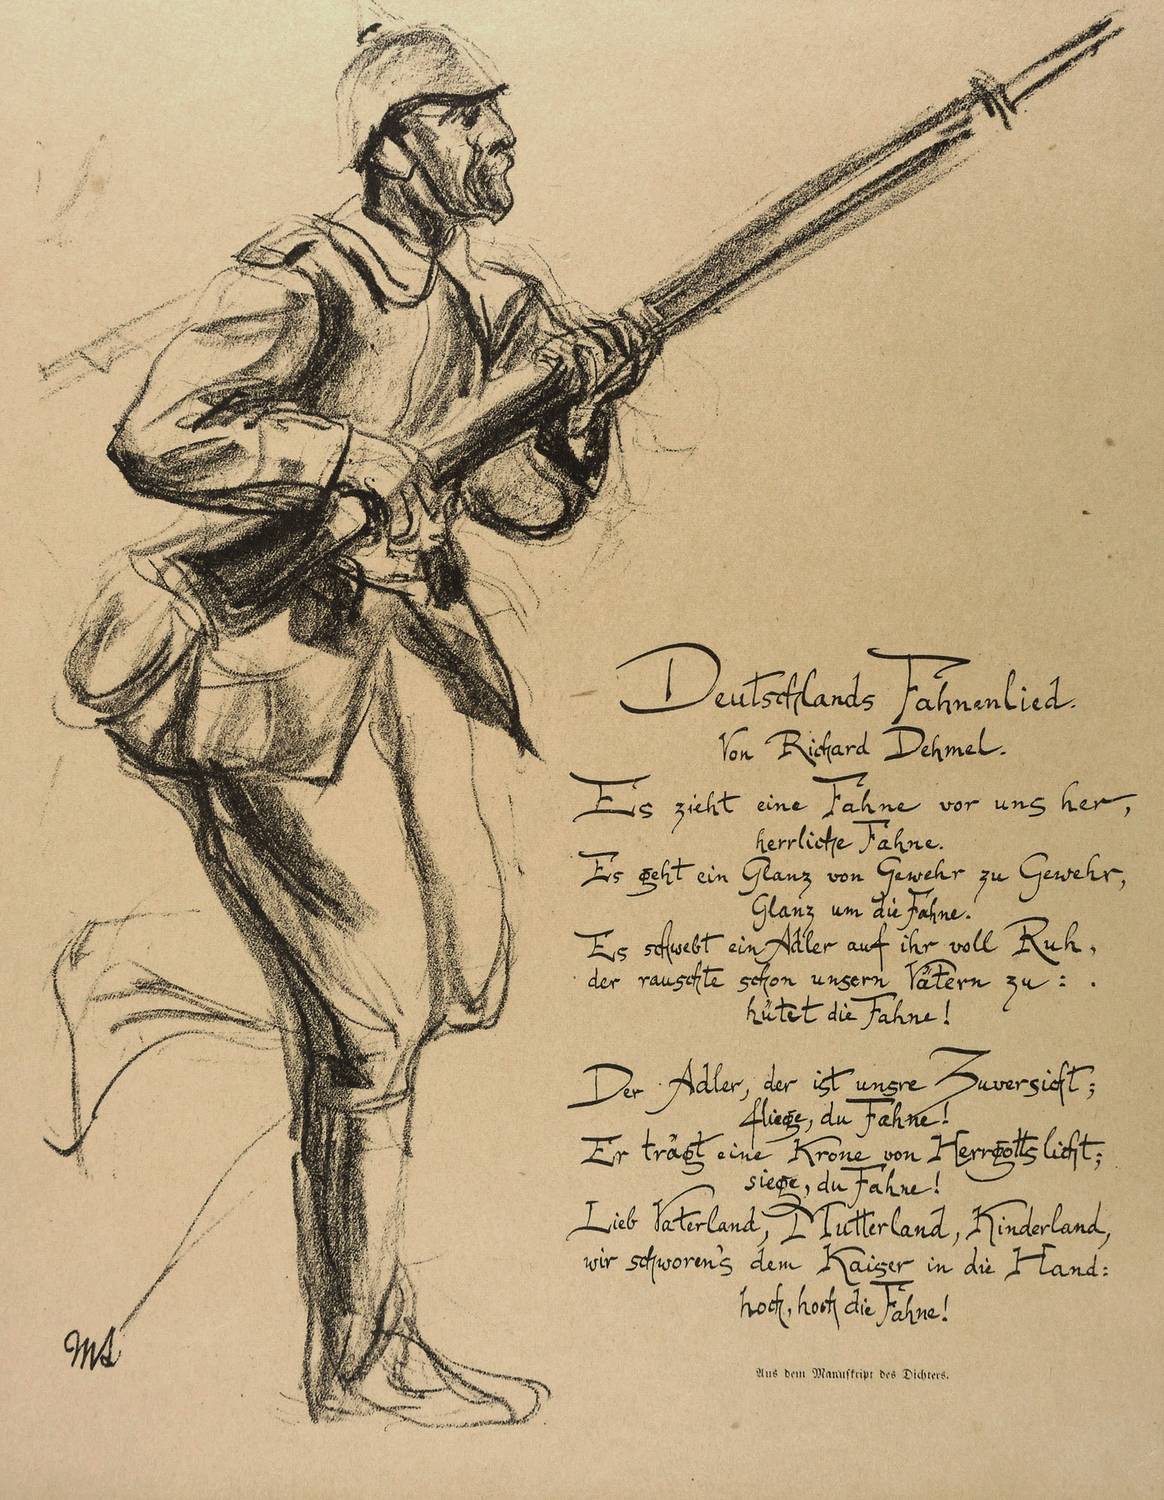 Deutschlands Fahnenlied.
Von Richard Dehmel.
Es zieht eine Fahne vor uns her,
herrliche Fahne.
Es geht ein Glanz von Gewehr zu Gewehr,
Glanz um die Fahne.
Es schwebt ein Adler auf ihr voll Ruh,
der rauschte schon unsern Vätern zu:
hütet die Fahne!
Der Adler, der ist unsre Zuversicht;
fliege, du Fahne!
Er trägt eine Krone von Herrgottslicht;
siege, du Fahne!
Lieb Vaterland, Mutterland, Kinderland,
wir schworen's dem Kaiser in die Hand:
hoch, hoch die Fahne!
Aus dem Manuskript des Dichters.
ML